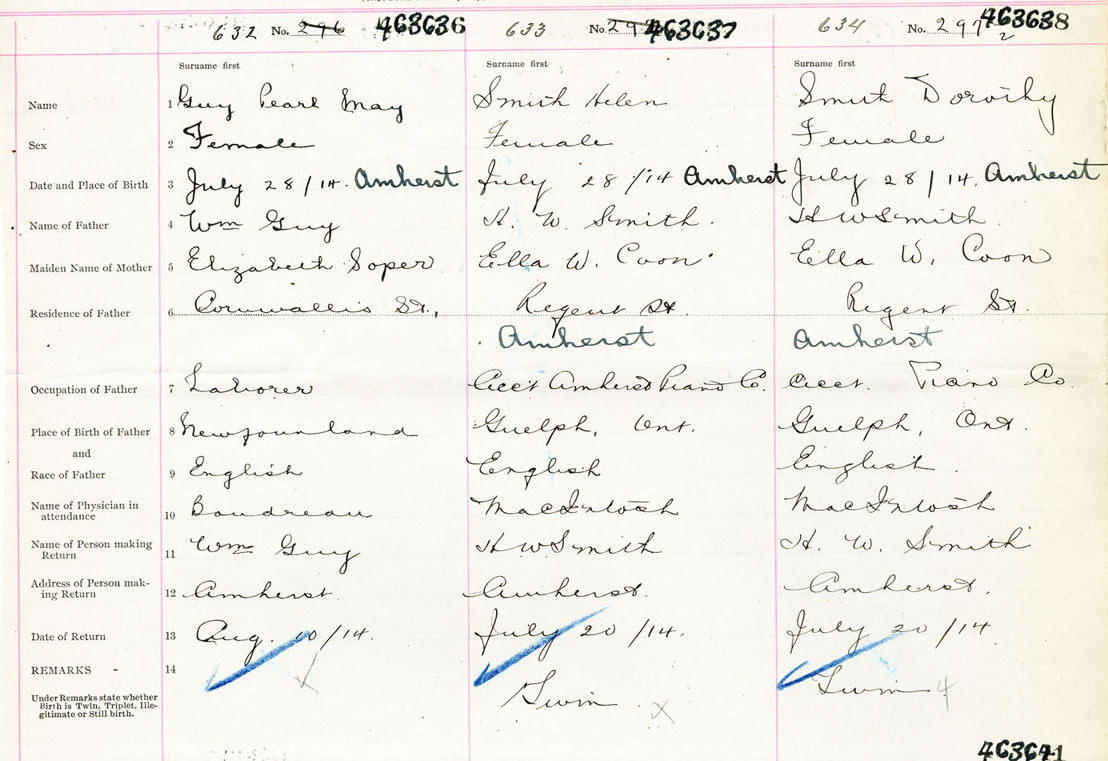 632 No. 296 463636 633 No. 297 463637 634 No. 297 2 463638
Surname first Surname first Surname first
Name 1 Guy Pearl May Smith Helen Smith Dorothy
Sex 2 Female Female Female
Date and Place of Birth 3 July 28/14. Amherst July 28/14 Amherst July 28/14. Amherst
Name of Father 4 Wm Guy H. W. Smith. H W Smith.
Maiden Name of Mother 5 Elizabeth Soper Ella W. Coon Ella W. Coon
Residence of Father 6 Cornwallis St., Regent St. Regent St.
Amherst Amherst
Occupation of Father 7 Laborer Acct Amherst Piano Co. Acct. Piano Co.
Place of Birth of Father 8 Newfounland Guelph, Ont. Guelph, Ont.
and
Race of Father 9 English English English.
Name of Physician in
attendance 10 Boudreau MacIntosh MacIntosh
Name of Person making
Return 11 Wm Guy H W Smith H. W. Smith
Address of Person mak-
ing Return 12 Amherst. Amherst. Amherst.
Date of Return 13 Aug. 10/14. July 20/14. July 20/14
REMARKS - 14 Twin Twin
Under Remarks state whether
Birth is Twin, Triplet, Ille-
gitimate or Still birth.
463641